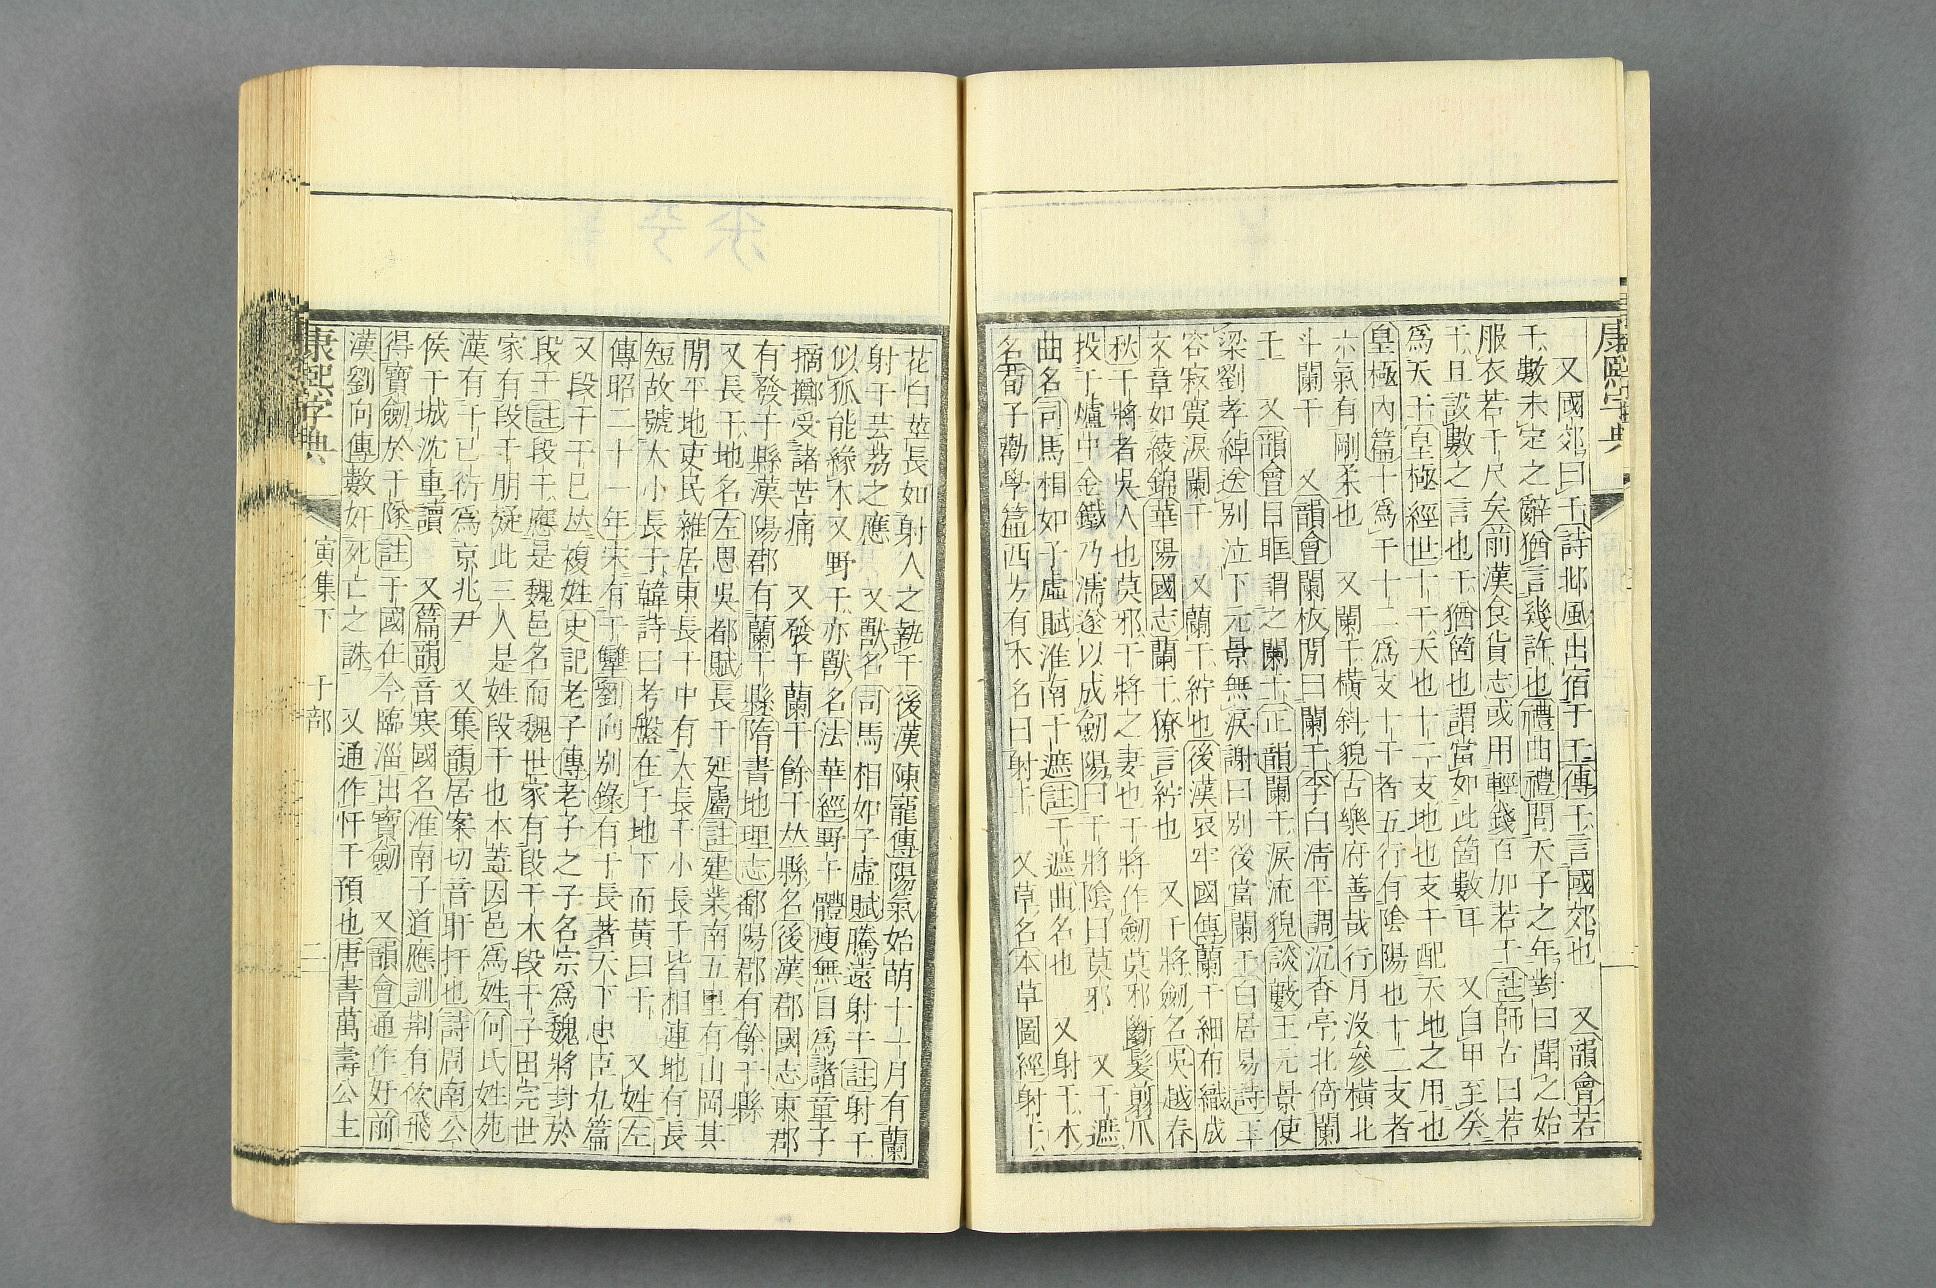 康熙字典
又國郊曰干詩邶風出宿于干傳干言國郊也 又韻會若
干數未定之辭猶言幾許也禮曲禮問天子之年對曰聞之始
服衣若干尺矣前漢食貨志或用輕錢百加若干註師古曰若
干且設數之言也干猶箇也謂當如此箇數耳 又自甲至癸
爲天干皇極經世十干天也十二支地也支干配天地之用也
皇極內篇十爲干十二爲支十干者五行有陰陽也十二支者
六氣有剛柔也 又闌干橫斜貌古樂府善哉行月沒參橫北
斗闌干 又韻會闌板閒曰闌干李白淸平調沉香亭北倚闌
干 又韻會目眶謂之闌干正韻闌干淚流貌談藪王元景使
梁劉孝綽送別泣下元景無淚謝曰別後當闌干白居易詩玉
容寂寞淚闌干 又蘭干紵也後漢哀牢國傳蘭干細布織成
文章如綾錦華陽國志蘭干獠言紵也 又干將劒名吳越春
秋干將者吳人也莫邪干將之妻也干將作劒莫邪斷髮剪爪
投于爐中金鐵乃濡遂以成劒陽曰干將陰曰莫邪 又干遮
曲名司馬相如子虛賦淮南干遮註干遮曲名也 又射干木
名荀子勸學篇西方有木名曰射干 又草名本草圖經射干
花白莖長如射人之執干後漢陳寵傳陽氣始萌十一月有蘭
射干芸荔之應 又獸名司馬相如子虛賦騰遠射干註射干
似狐能緣木又野干亦獸名法華經野干體瘦無目爲諸童子
摘擲受諸苦痛 又發干蘭干餘干丛縣名後漢郡國志東郡
有發干縣漢陽郡有蘭干縣隋書地理志鄱陽郡有餘干縣
又長干地名左思吳都賦長干延屬註建業南五里有山岡其
閒平地吏民雜居東長干中有大長干小長干皆相連地有長
短故號大小長干韓詩曰考盤在干地下而黃曰干 又姓左
傳昭二十一年宋有干犨劉向別錄有干長著天下忠臣九篇
又段干干已丛複姓史記老子傳老子之子名宗爲魏將封於
段干註段干應是魏邑名而魏世家有段干木段干子田完世
家有段干朋疑此三人是姓段干也本蓋因邑爲姓何氏姓苑
漢有干已衍爲京兆尹 又集韻居案切音旰扞也詩周南公
侯干城沈重讀 又篇韻音寒國名淮南子道應訓荆有佽飛
得寶劒於干隊註干國在今臨淄出寶劒 又韻會通作奸前
漢劉向傳數奸死亡之誅 又通作忓干預也唐書萬壽公主
康熙字典 寅集下 干部 二